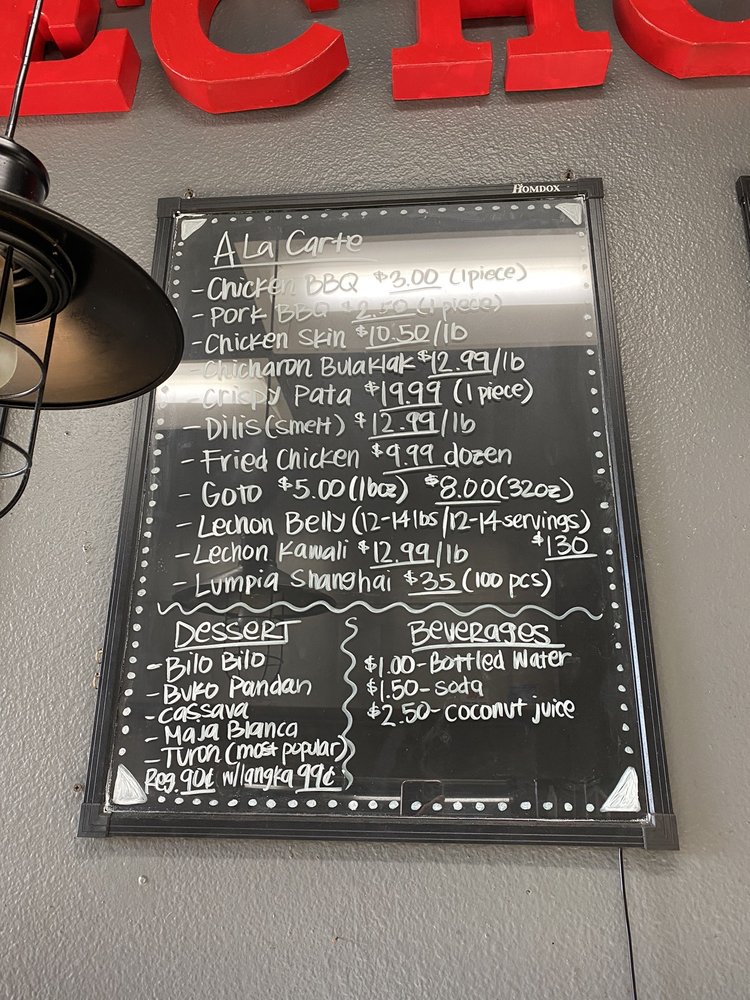 ECHO
HOMDOX
A La Carte
- Chicken BBQ $3.00 (1piece)
- Pork BBQ $2.50 (1 piece)
- Chicken Skin $10.50/lb
- Chicharon Bulaklak $12.99/lb
- Crispy Pata $19.99 (1 piece)
- Dilis (smelt) $12.99/lb
- Fried Chicken $9.99 dozen
- Goto $5.00 (16oz) $8.00 (32oz)
- Lechon Belly (12-14 lbs/12-14 servings)
$130
- Lechon Kawali $12.99/lb
- Lumpia Shanghai $35 (100 pcs)
Dessert
- Bilo Bilo
- Buko Pandan
- Cassava
- Maja Blanca
- Turon (most popular)
Reg. 90¢ w/langka 99¢
Beverages
$1.00 - Bottled Water
$1.50 - soda
$2.50 - coconut juice